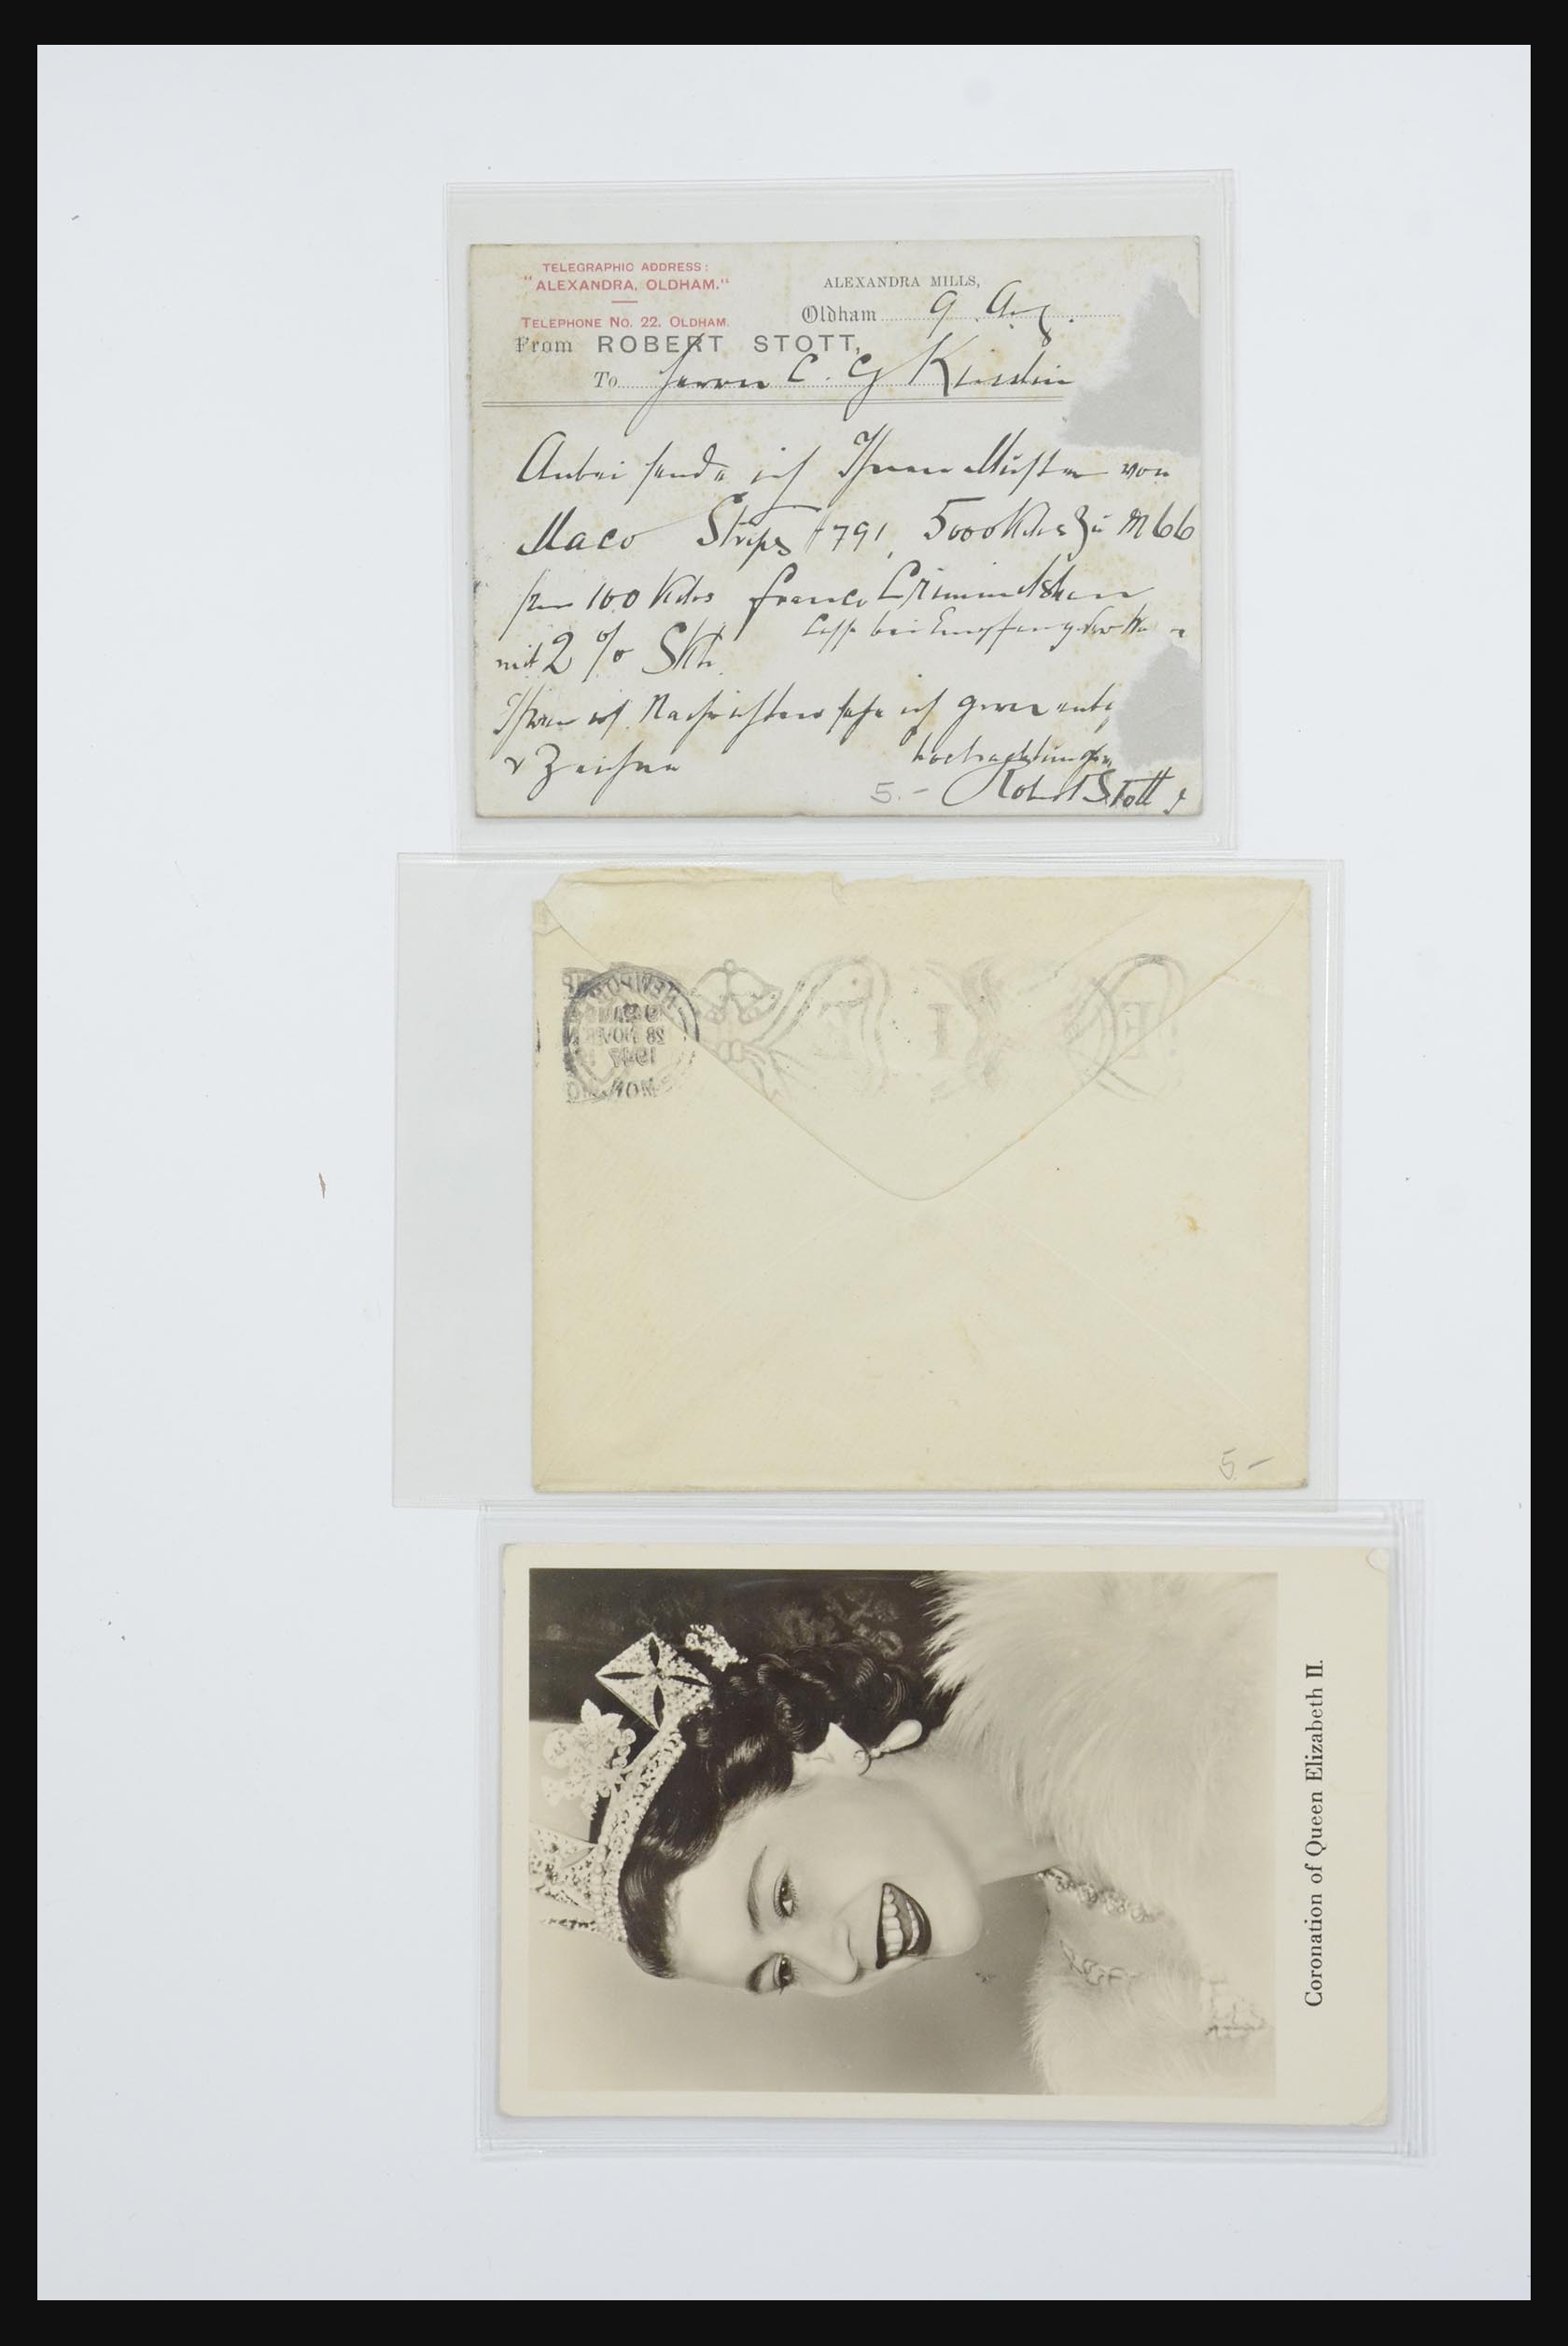 TELEGRAPHIC ADDRESS:
"ALEXANDRA, OLDHAM."
TELEPHONE No. 22, OLDHAM.
ALEXANDRA MILLS,
Oldham 9. Aug.
From ROBERT STOTT,
To Herrn C. G.
Anbei sende ich Ihnen Muster von
Maco Strips 791, 5000 Kilos zu M 66
per 100 Kilos franco Crimmitschau
mit 2 % Skto. Cassa bei Empfang der
Ihren Nachrichten sehe ich gerne
& Zeichne
Robert Stott
5.-
NEWPOR
28 NOV
1947
MON
E II R
5.-
Coronation of Queen Elizabeth II.